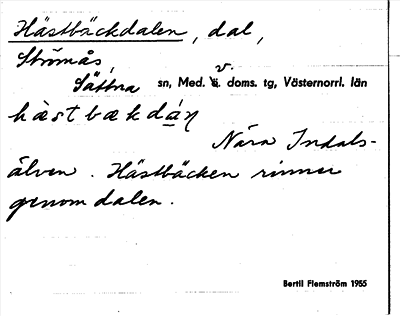 Hästbäckdalen, dal,
Strömås,
Sättna sn, Med. v. doms. tg, Västernorrl. län
hàstbækdáṇ
Nära Indals-
älven. Hästbäcken rinner
genom dalen.
Bertil Flemström 1955